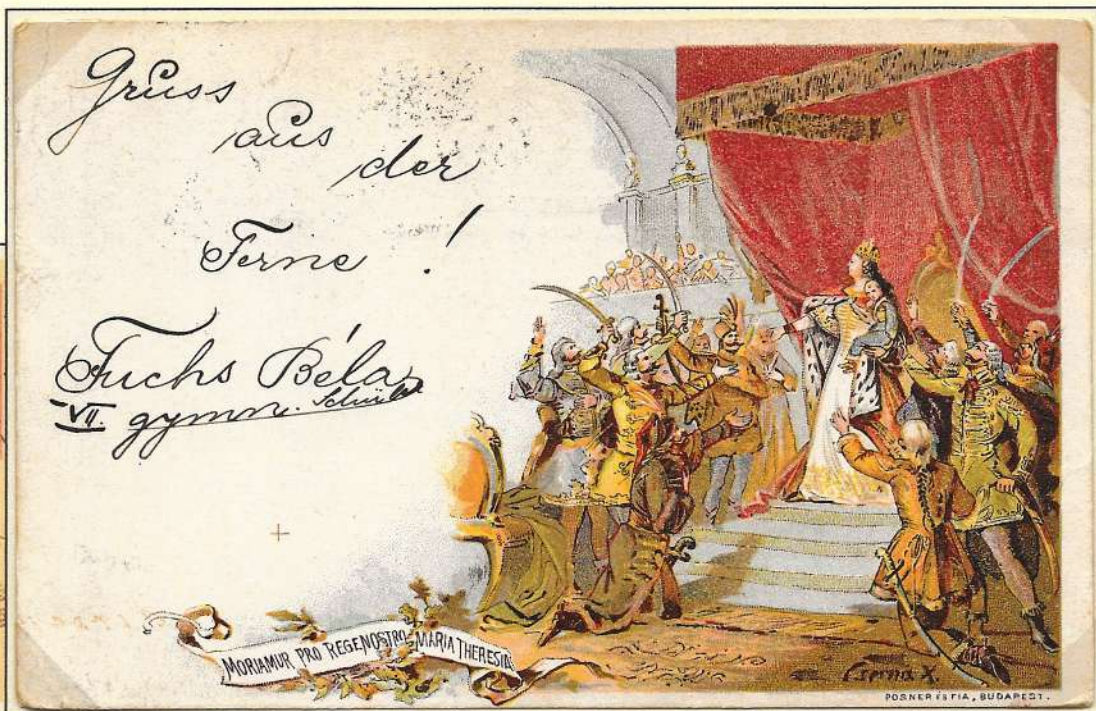 Gruss
aus
der
Ferne !
Fuchs Béla
VII. gymn. Schüler
MORIAMUR PRO REGE NOSTRO MARIA THERESIA
Cserna K.
POSNER ÉS FIA, BUDAPEST.